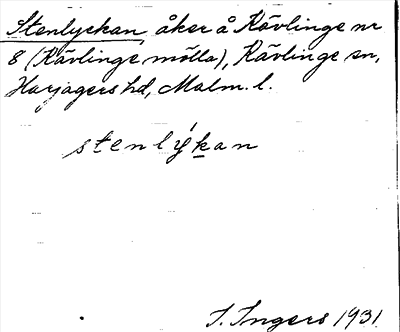 Stenlyckan, åker å Kävlinge nr
8 (Kävlinge mölla), Kävlinge sn,
Harjagers hd, Malm. l.
stenlýkan
I. Ingers 1931